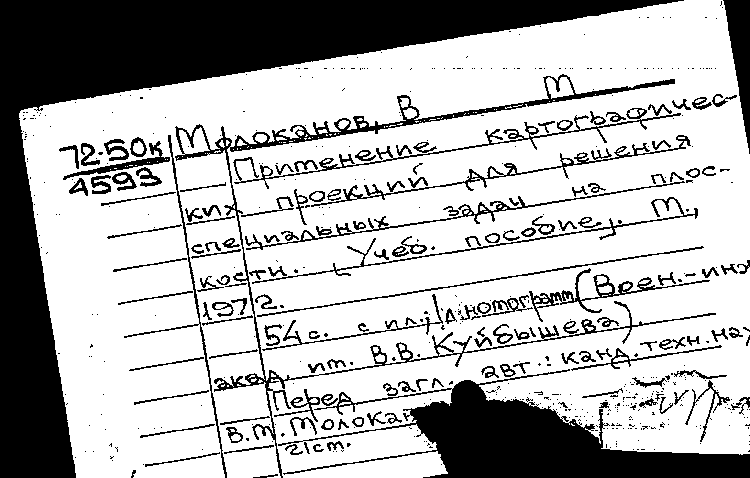 72-50к
4593
Молоканов, В М
Применение картографичес-
ких проекций для решения
специальных задач на плос-
кости. [Учеб. пособие.]. М.,
1972.
54 с. с ил.; 1 л. номограмм (Воен.-инж
акад. им. В.В. Куйбышева).
Перед загл. авт.: канд. техн. на
В.М. Молокан
21см.